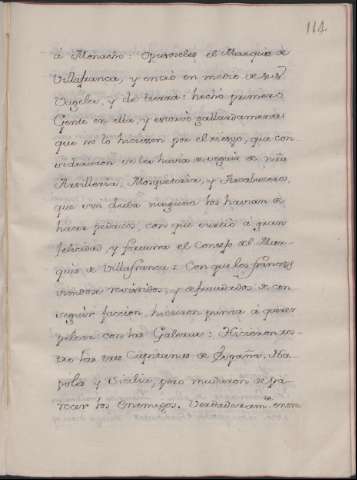 114
á Monacho: Opusoseles el Marques de
Villafranca, y entró en medio de sus
Vageles, y de tierra: hechó primero
Gente en ella, y estorvó gallardamente
que no lo hiciesen por el riesgo, que con
evidencia se les havia de seguir de n̄ra
Artilleria, Mosqueteria, y Arcabuceros,
que sin duda ninguna los havian de
hacer pedazos, con que surtió á gran
felicidad, y fortuna el Consejo del Mar-
ques de Villafranca: Con que los franceses
viendose resistidos, y defraudados de con-
seguir faccion, hicieron punta á querer
pelear con las Galeras: Hicieron ros-
tro las tres Capitanas de España, Na-
poles y Sicilia, pero mudaron de pa-
recer los Enemigos. Verdaderam.te